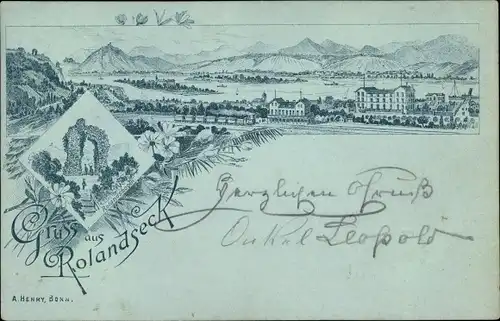 Gruss aus
Rolandseck
Herzlichen Gruß
Onkel Leopold
A. HENRY, BONN.